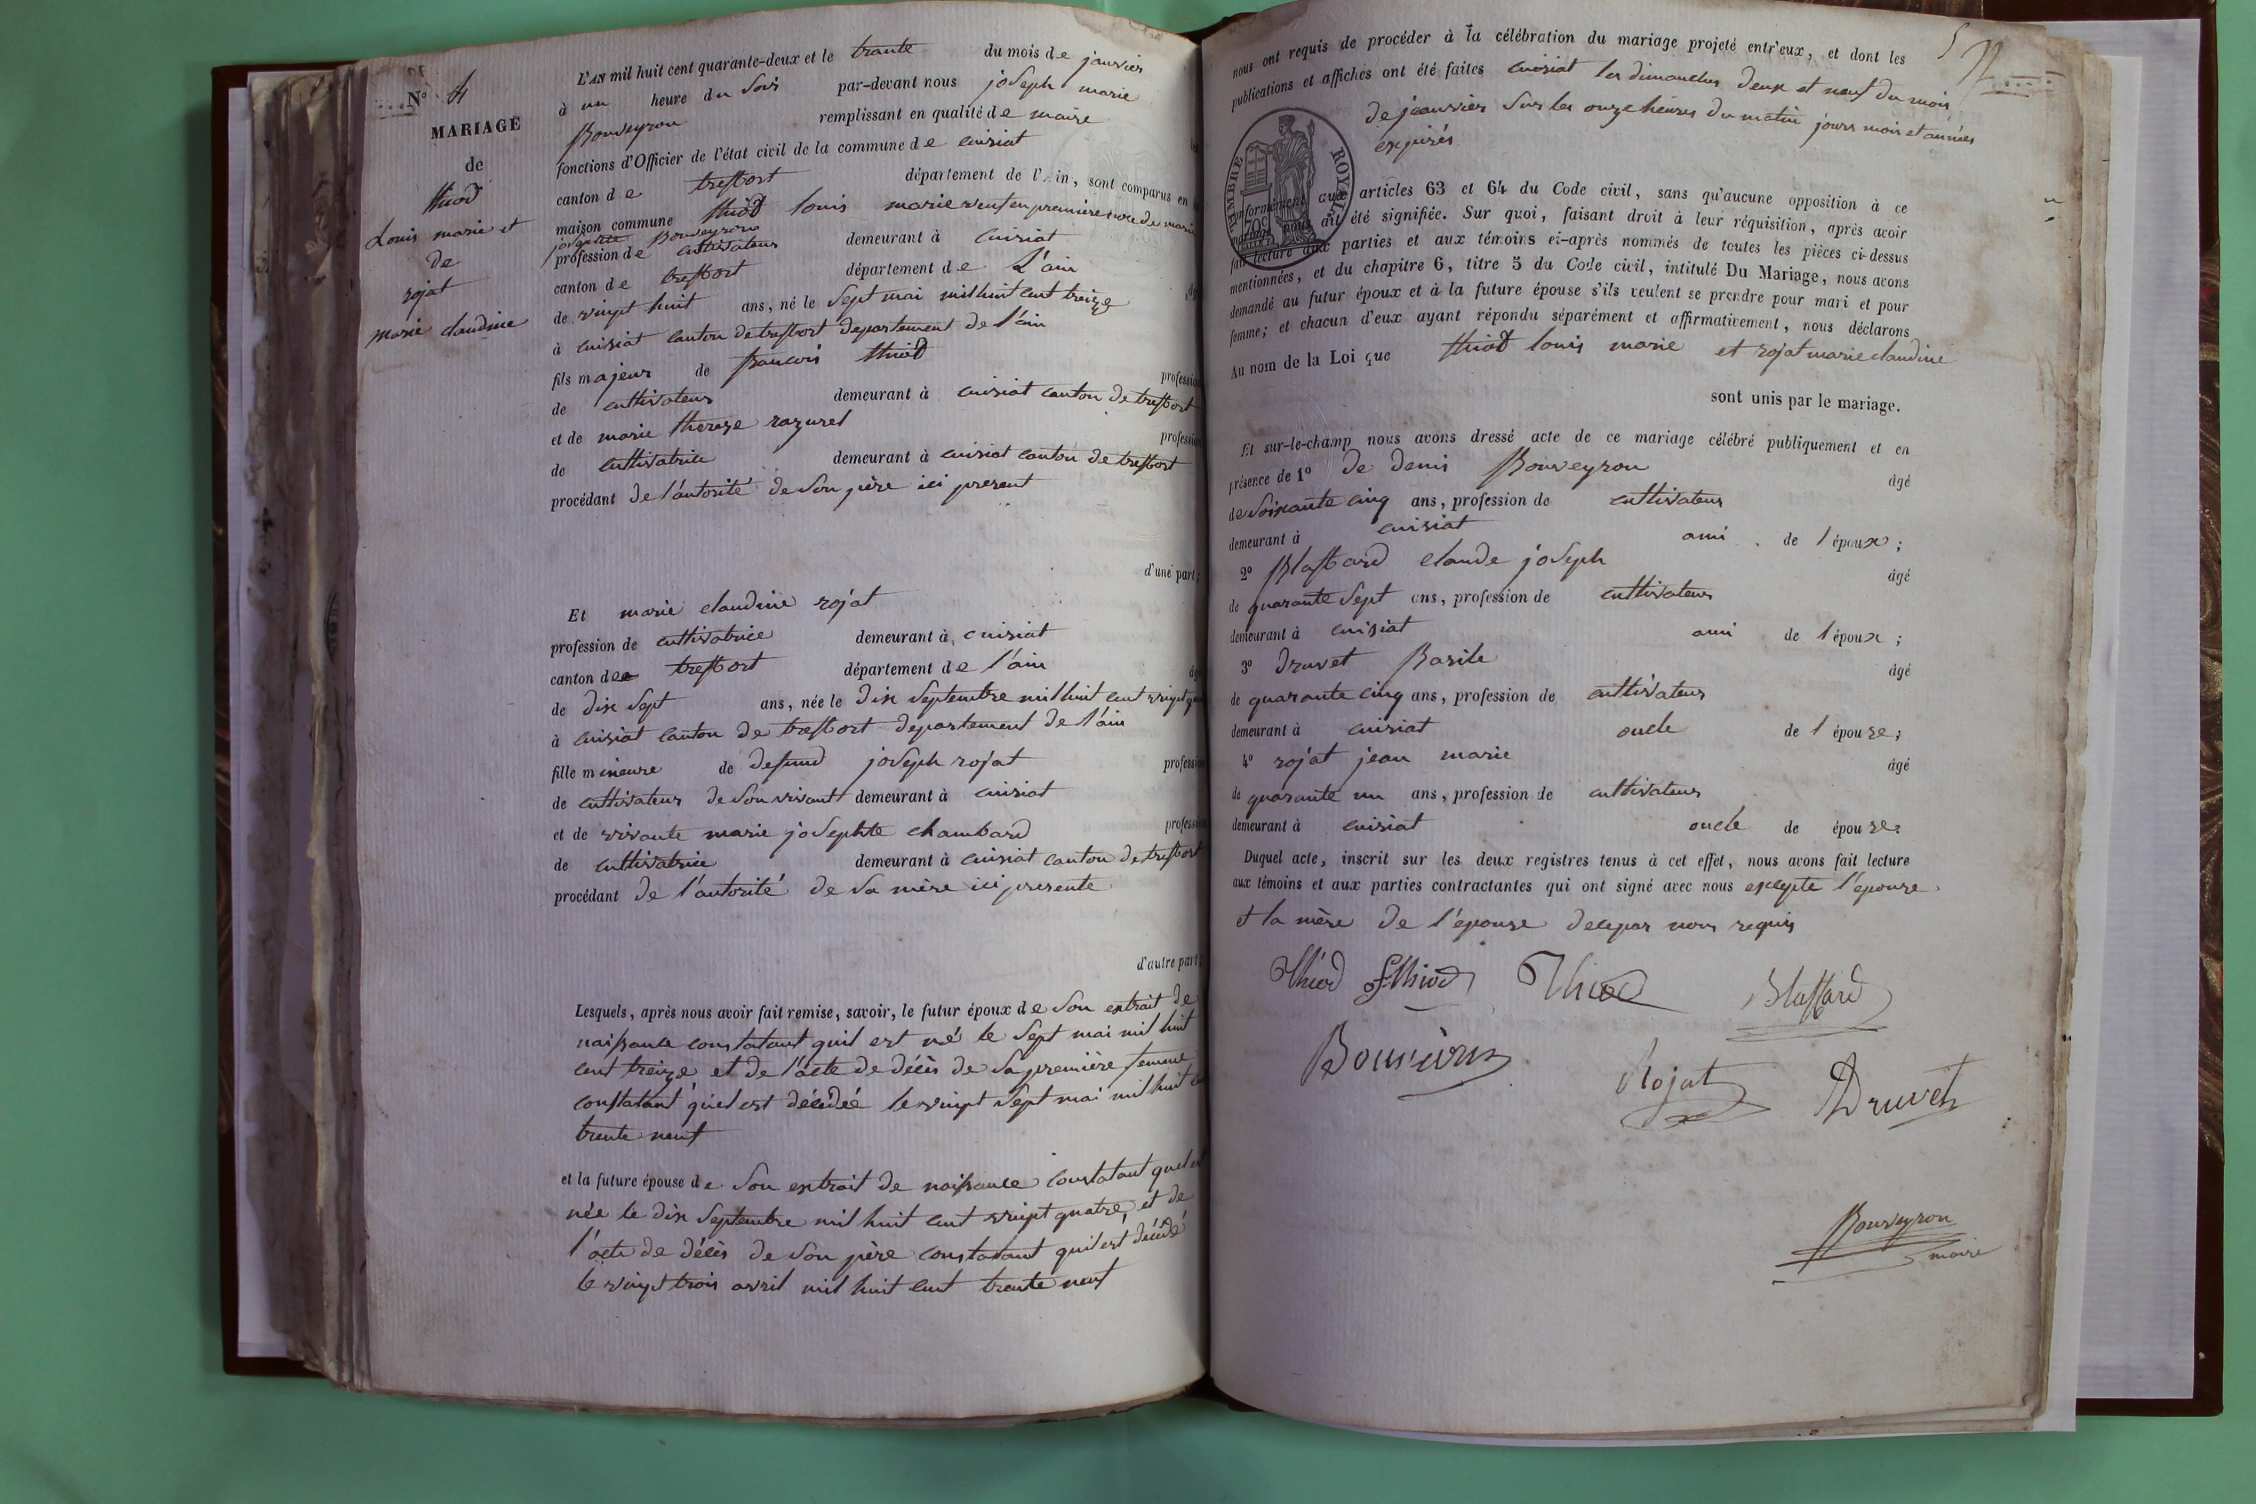 N° 4
MARIAGE
de
thiod
Louis marie et
de
rojat
marie claudine
L'AN mil huit cent quarante-deux et le trante du mois de janvier
à un heure du soir par-devant nous joseph marie
Bouveyron remplissant en qualité de maire
fonctions d'Officier de l'état civil de la commune de cuisiat
canton de treffort département de l'Ain, sont comparus en la
maison commune thiod louis marie veuf en premiere noce de marie
josephte Bouveyron
profession de cultivateur demeurant à cuisiat
canton de treffort département de L'ain
de vingt huit ans, né le sept mai mil huit cent treize
à cuisiat canton de treffort departement de l'ain
fils majeur de francois thiod profession
de cultivateur demeurant à cuisiat canton de treffort
et de marie thereze razurel profession
de cultivatrice demeurant à cuisiat canton de treffort
procédant de l'autorité de son père ici present
d'une part;
Et marie claudine rojat
profession de cultivatrice demeurant à cuisiat
canton dee treffort département de l'ain
de dix sept ans, née le dix septembre mil huit cent vingt quatre
à cuisiat canton de treffort departement de l'ain
fille mineure de defund joseph rojat profession
de cultivateur de son vivant demeurant à cuisiat
et de vivante marie josephte chambard profession
de cultivatrice demeurant à cuisiat canton de treffort
procédant de l'autorité de sa mère ici presente
d'autre part;
Lesquels, après nous avoir fait remise, savoir, le futur époux de son extrait de
naissance constatant quil est né le sept mai mil huit
cent treize et de l'acte de décès de sa première femme
constatant quel est décédée le vingt sept mai mil huit cent
trente neuf
et la future épouse de son extrait de naissance constatant quel est
née le dix septembre mil huit cent vingt quatre, et de
l'acte de décès de son père constatant quil est décédé
le vingt trois avril mil huit cent trente neuf
nous ont requis de procéder à la célébration du mariage projeté entr'eux, et dont les
publications et affiches ont été faites cuisiat les dimanches deux et neuf du mois
de jeanvier sur les onze heures du matin jours mois et années
expirés
TIMBRE ROYAL
70c
conformément aux articles 63 et 64 du Code civil, sans qu'aucune opposition à ce
mariage nous ait été signifiée. Sur quoi, faisant droit à leur réquisition, après avoir
fait lecture aux parties et aux témoins ci-après nommés de toutes les pièces ci-dessus
mentionnées, et du chapitre 6, titre 5 du Code civil, intitulé Du Mariage, nous avons
demandé au futur époux et à la future épouse s'ils veulent se prendre pour mari et pour
femme; et chacun d'eux ayant répondu séparément et affirmativement, nous déclarons
Au nom de la Loi que thiod louis marie et rojat marie claudine
sont unis par le mariage.
Et sur-le-champ nous avons dressé acte de ce mariage célébré publiquement et en
présence de 1° de denis Bouveyron âgé
de soixante cinq ans, profession de cultivateur
demeurant à cuisiat ami de l'époux;
2° Blaffard claude joseph âgé
de quarante sept ans, profession de cultivateur
demeurant à cuisiat ami de l'époux;
3° druvet Basile âgé
de quarante cinq ans, profession de cultivateur
demeurant à cuisiat oncle de l'épouse;
4° rojat jean marie âgé
de quarante un ans, profession de cultivateur
demeurant à cuisiat oncle de épouse.
Duquel acte, inscrit sur les deux registres tenus à cet effet, nous avons fait lecture
aux témoins et aux parties contractantes qui ont signé avec nous excepte l'epouse
et la mère de l'épouse de ce par nous requis
Thiod f thiod Thiod Blaffard
Rojat Druvet
Bouveyron
maire